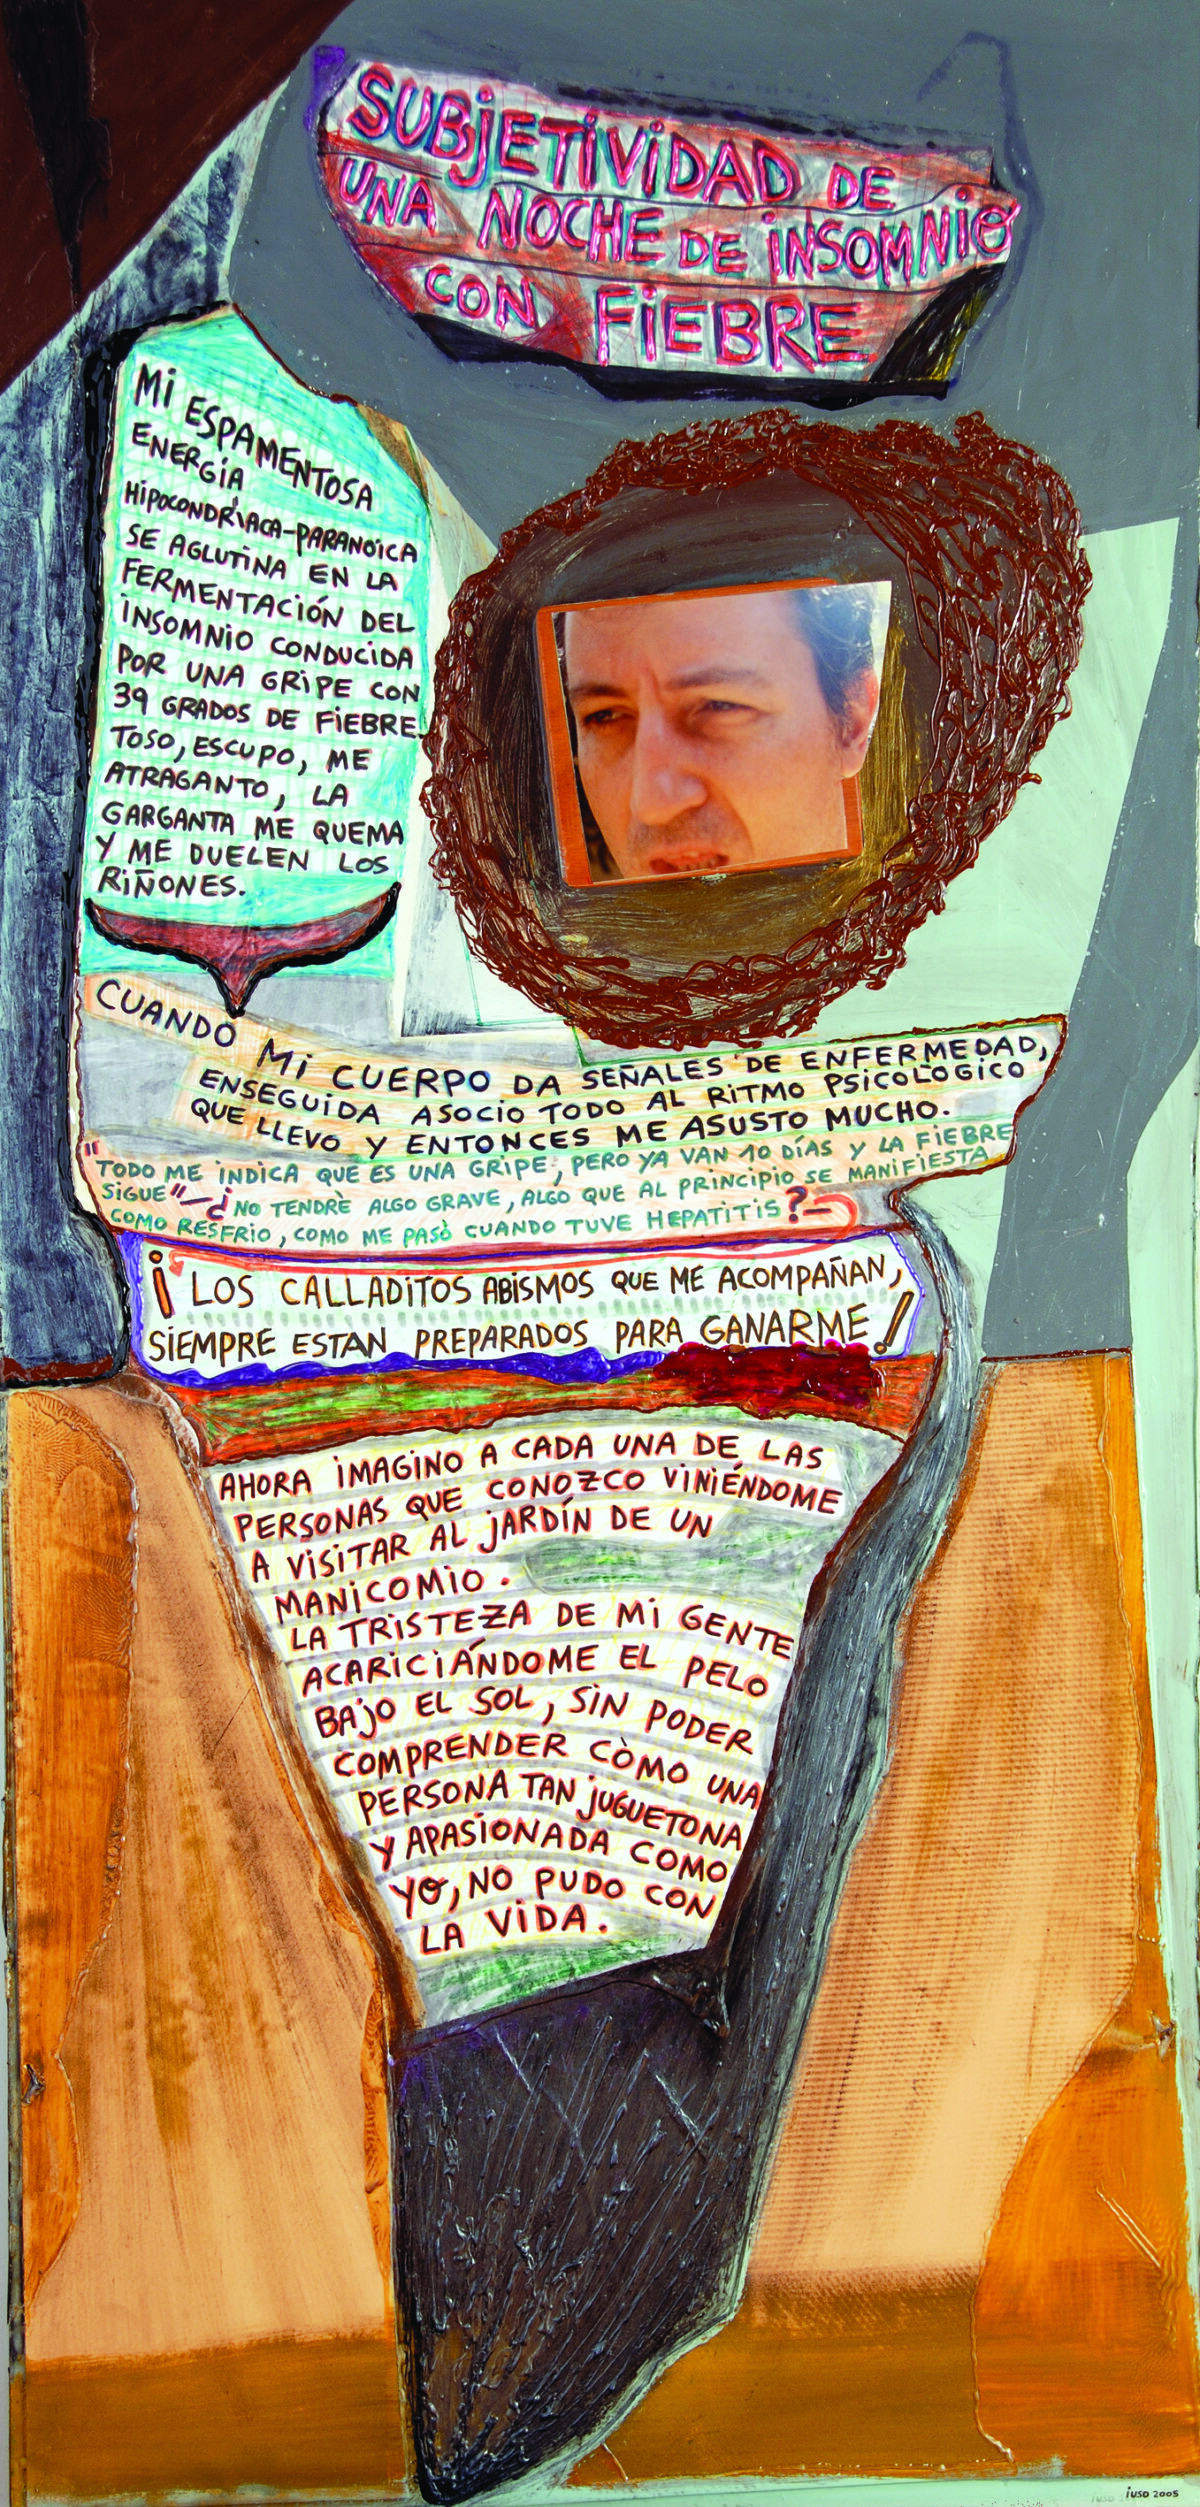 SUBJETIVIDAD DE
UNA NOCHE DE INSOMNIO
CON FIEBRE
MI ESPAMENTOSA
ENERGÍA
HIPOCONDRÍACA-PARANOICA
SE AGLUTINA EN LA
FERMENTACIÓN DEL
INSOMNIO CONDUCIDA
POR UNA GRIPE CON
39 GRADOS DE FIEBRE.
TOSO, ESCUPO, ME
ATRAGANTO, LA
GARGANTA ME QUEMA
Y ME DUELEN LOS
RIÑONES.
CUANDO MI CUERPO DA SEÑALES DE ENFERMEDAD,
ENSEGUIDA ASOCIO TODO AL RITMO PSICOLOGICO
QUE LLEVO Y ENTONCES ME ASUSTO MUCHO.
"TODO ME INDICA QUE ES UNA GRIPE, PERO YA VAN 10 DÍAS Y LA FIEBRE
SIGUE"-¿NO TENDRÈ ALGO GRAVE, ALGO QUE AL PRINCIPIO SE MANIFIESTA
COMO RESFRIO, COMO ME PASÒ CUANDO TUVE HEPATITIS?-
¡LOS CALLADITOS ABISMOS QUE ME ACOMPAÑAN,
SIEMPRE ESTAN PREPARADOS PARA GANARME!
AHORA IMAGINO A CADA UNA DE LAS
PERSONAS QUE CONOZCO VINIÉNDOME
A VISITAR AL JARDÍN DE UN
MANICOMIO.
LA TRISTEZA DE MI GENTE
ACARICIÁNDOME EL PELO
BAJO EL SOL, SIN PODER
COMPRENDER CÒMO UNA
PERSONA TAN JUGUETONA
Y APASIONADA COMO
YO, NO PUDO CON
LA VIDA.
IUSO 2005